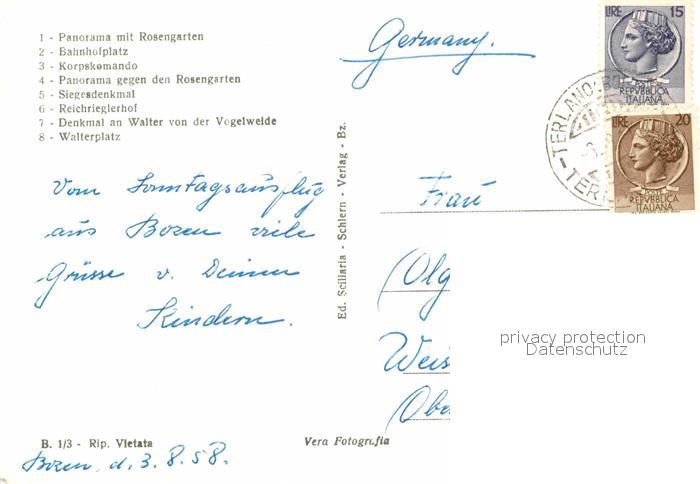 1 - Panorama mit Rosengarten
2 - Bahnhofplatz
3 - Korpskomando
4 - Panorama gegen den Rosengarten
5 - Siegesdenkmal
6 - Reichrieglerhof
7 - Denkmal an Walter von der Vogelweide
8 - Walterplatz
Germany.
LIRE 15
POSTE
REPVBBLICA
ITALIANA
LIRE 20
POSTE
REPVBBLICA
ITALIANA
TERLANO
TER
Vom Sonntagsausflug
aus Bozen viele
Grüsse v. Deinen
Kindern.
Ed. Sciliaria - Schlern - Verlag - Bz.
Frau
(Olg
Weis
Obe
privacy protection
Datenschutz
B. 1/3 - Rip. Vietata
Vera Fotografia
Bozen, d. 3.8.58.